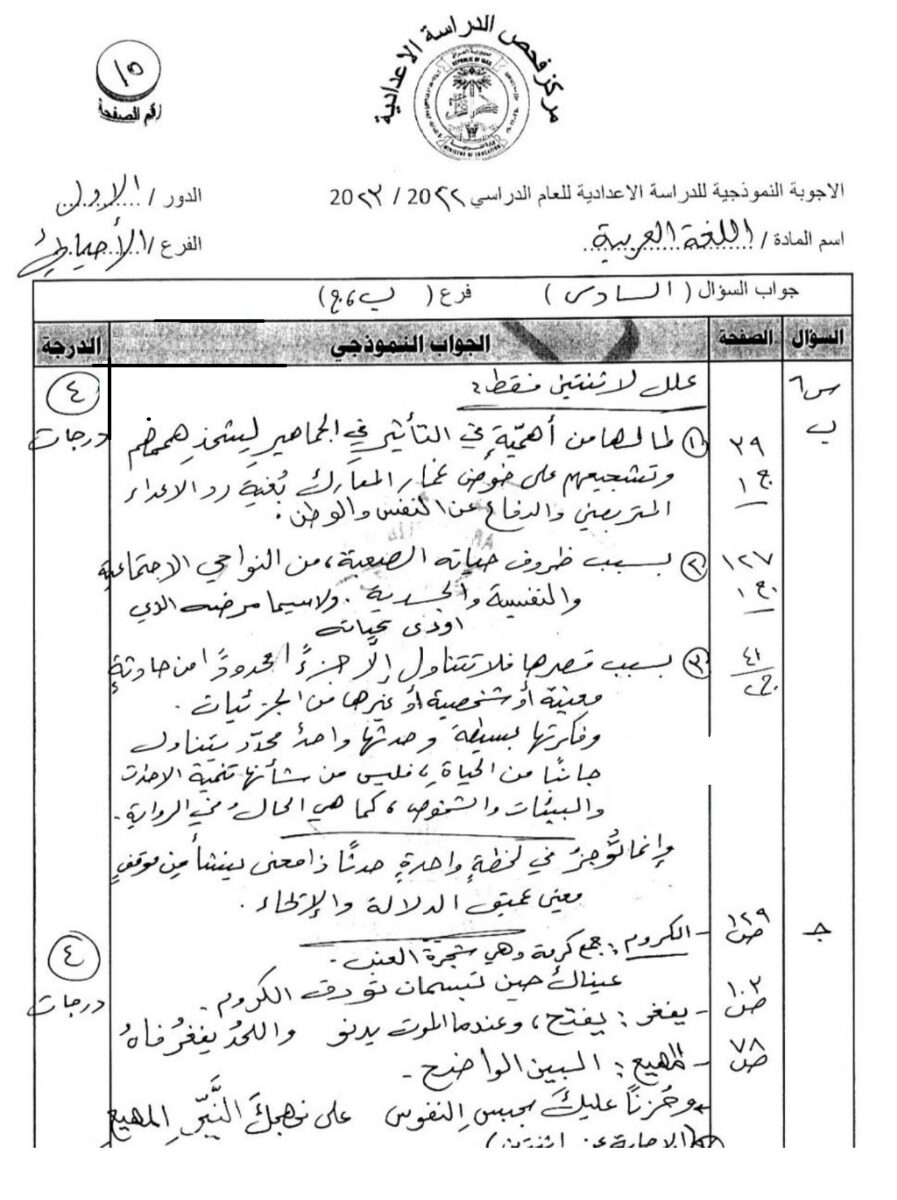 مركز فحص الدراسة الاعدادية
جمهورية العراق
REPUBLIC OF IRAQ
MINISTRY OF EDUCATION
١٥
رقم الصفحة
الاجوبة النموذجية للدراسة الاعدادية للعام الدراسي ٢٠٢٢ / ٢٠٢٣
الدور / الاول
اسم المادة / اللغة العربية
الفرع / الأحيائي
جواب السؤال ( السادس ) فرع ( ب، ج )
السؤال الصفحة الجواب النموذجي الدرجة
س٦ علل لاثنتين فقط: ٤ درجات
ب ٣٩ ج١ ① لما لها من أهميّة في التأثير في الجماهير ليشحذ هممهم
وتشجيعهم على خوض غمار المعارك بُغية رد الاعداء
المتربصين والدفاع عن النفس والوطن.
١٢٧ ج١ ② بسبب ظروف حياته الصعبة، من النواحي الاجتماعية
والنفسية والجسدية. ولاسيما مرضه الذي
اودى بحياته
٤١ ج٢ ③ بسبب قصرها فلا تتناول إلّا جزءًا محدودًا من حادثةٍ
معينة أو شخصية أو غيرها من الجزئيات.
وفكرتها بسيطة وحدثها واحدٌ محدّد يتناول
جانبًا من الحياة، فليس من شأنها تنمية الاحداث
والبيئات والشخوص، كما هي الحال في الرواية.
وإنما تُوجزُ في لحظةٍ واحدةٍ حدثًا ذا معنى ينشأ من موقفٍ
معين عميق الدلالة والإيحاء.
جـ ١٢٩ ص - الكروم: جمع كرمة وهي شجرة العنب. ٤ درجات
عيناك حين تبسمان تورق الكروم.
١٠٢ ص - يفغر: يفتح، وعندما الموت يدنو واللحدُ يفغرُ فاهُ
٧٨ ص - المهيع: البين الواضح.
وحُزنًا عليكَ بحبسِ النفوس على نهجكَ النَّيِّرِ المهيع
(الاجابة عن اثنتين)